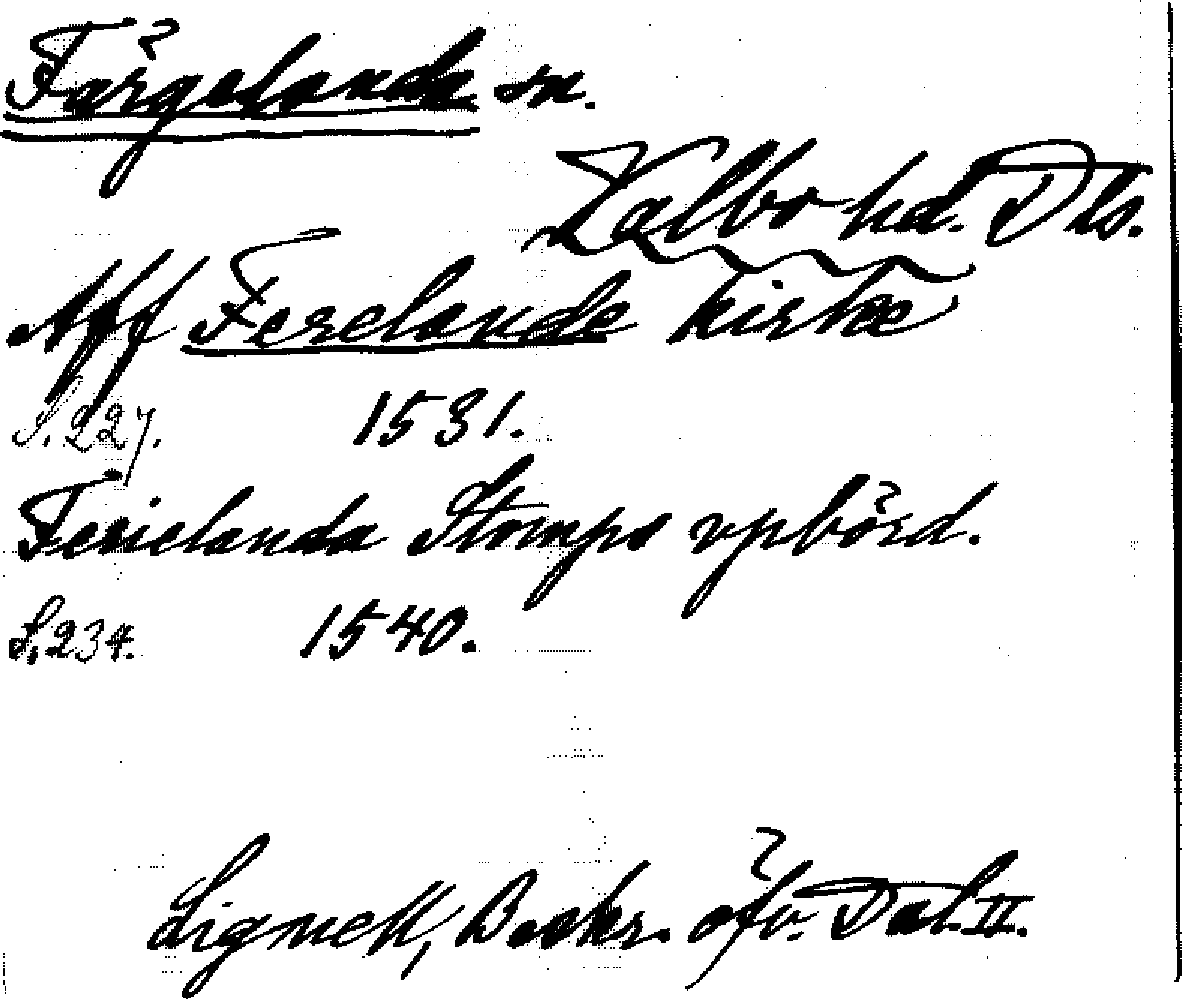 Färgelanda sn.
Valbo hd. Dls.
Aff Ferelande kirke
S. 227. 1531.
Ferielanda Stomps vpbörd.
S. 234. 1540.
Lignell, Beskr. öfv. Dal. II.